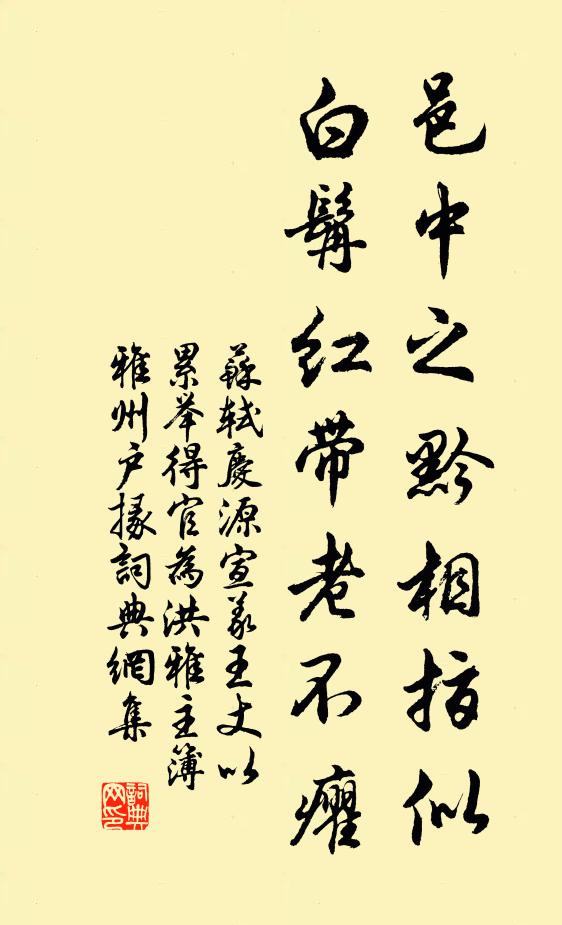 邑中之黔相指似
白髯红带老不癯
蘇軾慶源宣義王丈以
累举得官為洪雅主簿
雅州户掾詞典網集
詞典网印